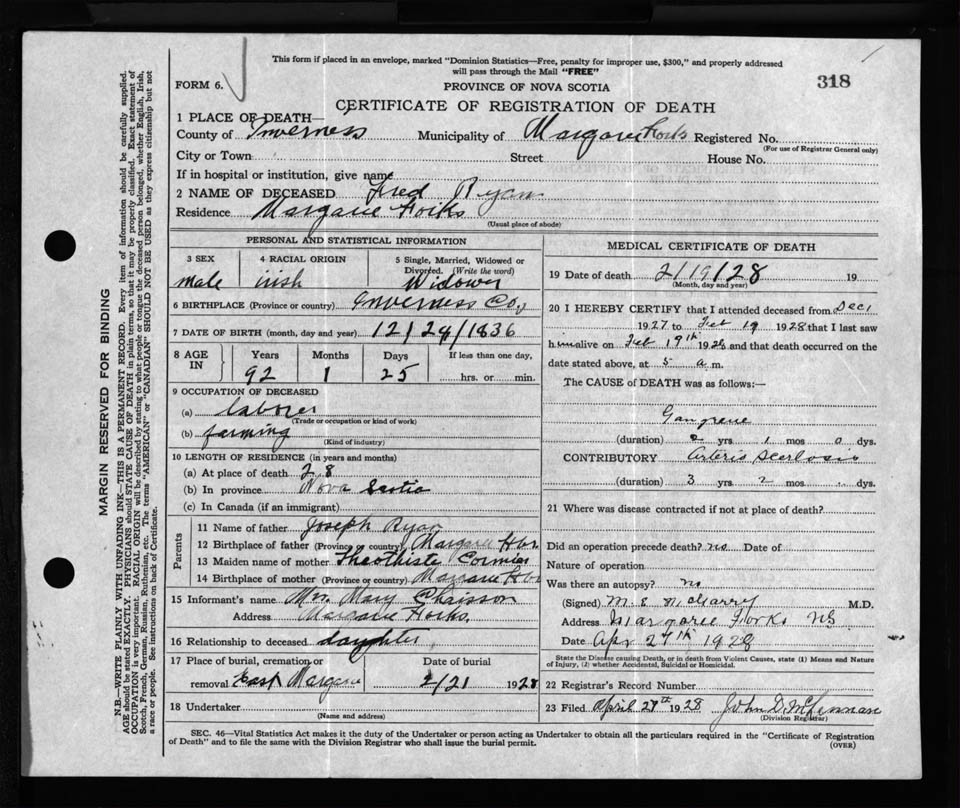 This form if placed in an envelope, marked "Dominion Statistics—Free, penalty for improper use, $300," and properly addressed
will pass through the Mail "FREE"
FORM 6.
PROVINCE OF NOVA SCOTIA
318
CERTIFICATE OF REGISTRATION OF DEATH
1 PLACE OF DEATH—
County of Inverness Municipality of Margaree Forks Registered No.
(For use of Registrar General only)
City or Town Street House No.
If in hospital or institution, give name
2 NAME OF DECEASED Fred Ryan
Residence Margarie Forks
(Usual place of abode)
PERSONAL AND STATISTICAL INFORMATION
3 SEX 4 RACIAL ORIGIN 5 Single, Married, Widowed or Divorced. (Write the word)
male irish Widower
6 BIRTHPLACE (Province or country) Inverness Co,
7 DATE OF BIRTH (month, day and year) 12/24/1836
8 AGE IN Years Months Days If less than one day,
92 1 25 hrs. or min.
9 OCCUPATION OF DECEASED
(a) laborer
(Trade or occupation or kind of work)
(b) farming
(Kind of industry)
10 LENGTH OF RESIDENCE (in years and months)
(a) At place of death 28
(b) In province Nova Scotia
(c) In Canada (if an immigrant)
Parents
11 Name of father Joseph Ryan
12 Birthplace of father (Province or country) Margaree Hbr
13 Maiden name of mother Theothiste Cormier
14 Birthplace of mother (Province or country) Margaree Hbr
15 Informant's name Mrs. Mary Chaisson
Address Margarie Forks.
16 Relationship to deceased daughter
17 Place of burial, cremation or removal East Margarie Date of burial 2/21 1928
18 Undertaker
(Name and address)
MEDICAL CERTIFICATE OF DEATH
19 Date of death 2/19/28 19
(Month, day and year)
20 I HEREBY CERTIFY that I attended deceased from Dec 1
1927 to Feb 19 1928 that I last saw
him alive on Feb 19th 1928 and that death occurred on the
date stated above, at 5 a. m.
The CAUSE of DEATH was as follows:—
Gangrene
(duration) 2 yrs 1 mos 0 dys.
CONTRIBUTORY Arterio Scerlosis
(duration) 3 yrs 2 mos dys.
21 Where was disease contracted if not at place of death?
Did an operation precede death? no Date of
Nature of operation
Was there an autopsy? no
(Signed) M.D.
Address Margaree Forks NS
Date Apr 27th 1928
State the Disease causing Death, or in death from Violent Causes, state (1) Means and Nature
of Injury, (2) whether Accidental, Suicidal or Homicidal.
22 Registrar's Record Number
23 Filed April 27th 1928 John D. McLennan
(Division Registrar)
SEC. 46—Vital Statistics Act makes it the duty of the Undertaker or person acting as Undertaker to obtain all the particulars required in the "Certificate of Registration
of Death" and to file the same with the Division Registrar who shall issue the burial permit.
(OVER)
MARGIN RESERVED FOR BINDING
N.B.—WRITE PLAINLY WITH UNFADING INK—THIS IS A PERMANENT RECORD. Every item of information should be carefully supplied.
AGE should be stated EXACTLY. PHYSICIANS should STATE CAUSE OF DEATH in plain terms, so that it may be properly classified. Exact statement of
OCCUPATION is very important. RACIAL ORIGIN will be described by stating to what people or tongue the deceased person belonged, whether English, Irish,
Scotch, French, German, Russian, Ruthenian, etc. The terms "AMERICAN" or "CANADIAN" SHOULD NOT BE USED as they express citizenship but not
a race or people. See instructions on back of Certificate.